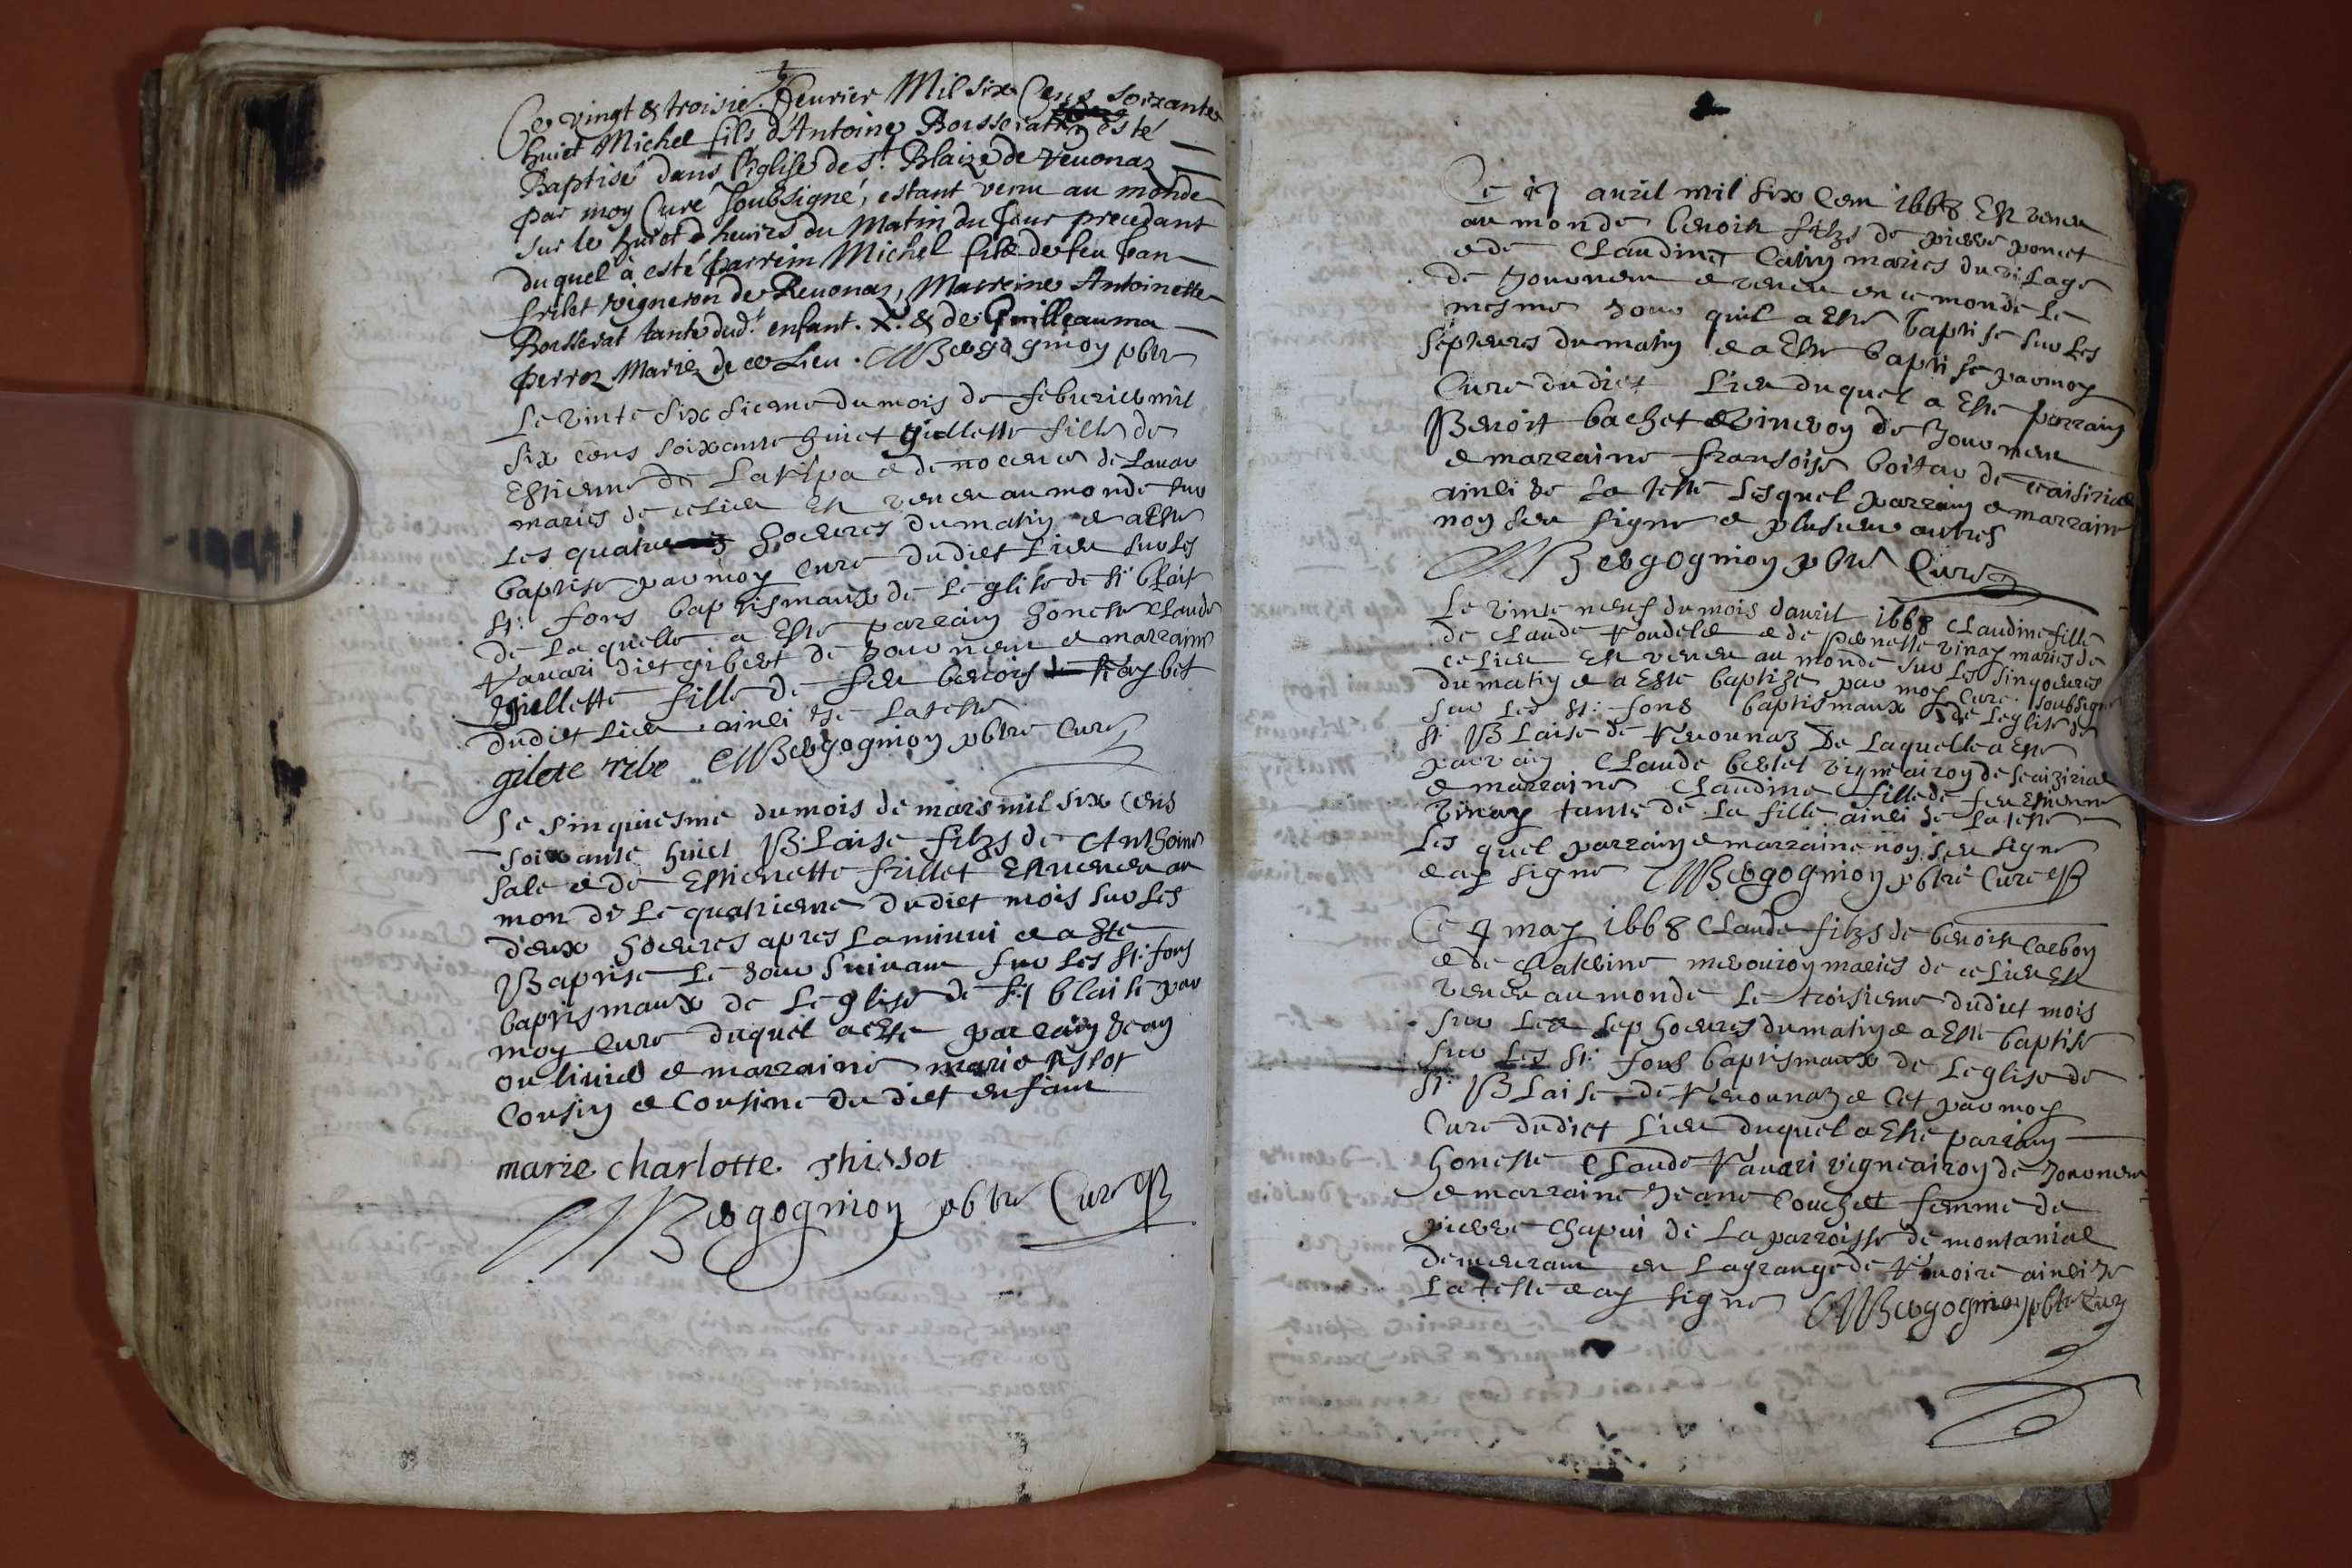 Ce vingt & troisie. feurier Mil six Cens soixante
huict Michel fils d'Antoine Bousserat esté
Baptisé dans l'Eglise de St. Blaize de veuonas
par moy Curé soubsigné, estant venu au monde
sur le huict d'heures du Matin du Jour precedant
duquel à esté parrein Michel filz de feu Jean
frilet vigneron de Reuonas, Marreine Antoinette
Bousserat tante dud.t enfant. X. & de Guilleauma
perroz Mariez de ce Lieu. Bergogmoy pbre
Le vinte sixsieme du mois de feburier mil
six cens soixante huict gillette fille de
Estienne de La ripa e de de Lauar
maries de ce lieu est veneu au monde sur
les quatre hoeures du matin e a este
baptise par moy cure dudict lieu sur les
St: fons baptismaux de l'eglise de St blaise
de laquelle a este parrain honeste Claude
Rauari dict gibert de Jouueneu e marraine
gillette fille de feu benoist
dudict lieu ainsi Je lateste
gilete ribe Bergogmoy pbre cure
Le sinquiesme du mois de mars mil six cens
soixante huict Blaise filzs de Anthoine
Sale e de Estienette frillet est veneu au
monde le quatrieme dudict mois sur les
deux hoeures apres la minui e a Este
Baptise le Jour suiuant sur les St: fons
baptismaux de l'eglise de St blaise par
moy cure duquel a este parrain Jean
ouliuier e marraine marie tissot
Cousin e Cousine du dict enfant
marie charlotte thissot
Bergogmoy pbbre Cure
Ce 17 auril mil six cens 1668 Est veneu
au monde benoist filzs de pierre ponset
e de Claudine Catin maries du vilage
de Jouueneu e veneu en ce monde le
mesme Jour quil a este baptise sur les
sept eures du matin e a este baptise par moy
Cure dudict lieu duquel a este parrain
Benoit bachet de Jouueneu
e marraine fransoise boitar de
ainsi Je la teste lesquel parrain e marraine
noy seu signe e plusieurs autres
Bergogmoy pbre Cure
Le vinte neuf du mois dauril 1668 Claudine fille
de Claude e de pernette vinay maries de
ce lieu est veneu au monde sur les sinq oeures
du matin e a este baptize par moy cure soubsigne
sur les St: fons baptismaux de leglise de
St Blaise de Reuounaz De laquelle a este
parrain Claude berlet vigneairoy de
e marraine Claudine fille de feu Estienne
vinay tante de la fille ainsi Je la teste
les quel parrain e marraine noy seu signe
e ay signe Bergogmoy pbre Cure
Ce 4 may 1668 Claude filzs de benoist Carboy
e de Chaterine meouroy maries de ce lieu est
veneu au monde le troisieme dudict mois
sur les sep hoeures du matin e a este baptise
sur les St: fons baptismaux de leglise de
St: Blaise de Reuounaz e Cet par moy
Cure dudict lieu duquel a este parrain
honeste Claude Rauari vigneairoy de Jouueneu
e marraine Jeane Couchet femme de
pierre Chapui de la parroisse de montanial
demeurant en la grange de ainsi Je
la teste e ay signe Bergogmoy pbre Cure